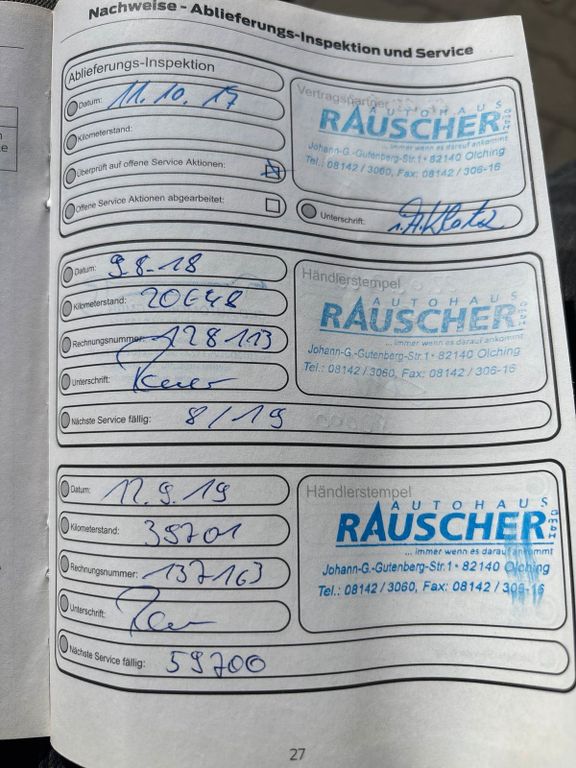 Nachweise - Ablieferungs-Inspektion und Service
Ablieferungs-Inspektion
Datum: 11.10.17
Kilometerstand:
Überprüft auf offene Service Aktionen:
Offene Service Aktionen abgearbeitet:
Vertragspartner
AUTOHAUS
RAUSCHER GmbH
... immer wenn es darauf ankommt
Johann-G.-Gutenberg-Str.1 • 82140 Olching
Tel.: 08142 / 3060, Fax: 08142 / 306-16
Unterschrift:
Datum: 9.8.18
Kilometerstand: 20648
Rechnungsnummer: 128113
Unterschrift:
Nächste Service fällig: 8/19
Händlerstempel
AUTOHAUS
RAUSCHER GmbH
... immer wenn es darauf ankommt
Johann-G.-Gutenberg-Str.1 • 82140 Olching
Tel.: 08142 / 3060, Fax: 08142 / 306-16
Datum: 12.9.19
Kilometerstand: 39701
Rechnungsnummer: 137163
Unterschrift:
Nächste Service fällig: 59700
Händlerstempel
AUTOHAUS
RAUSCHER GmbH
... immer wenn es darauf ankommt
Johann-G.-Gutenberg-Str.1 • 82140 Olching
Tel.: 08142 / 3060, Fax: 08142 / 306-16
27